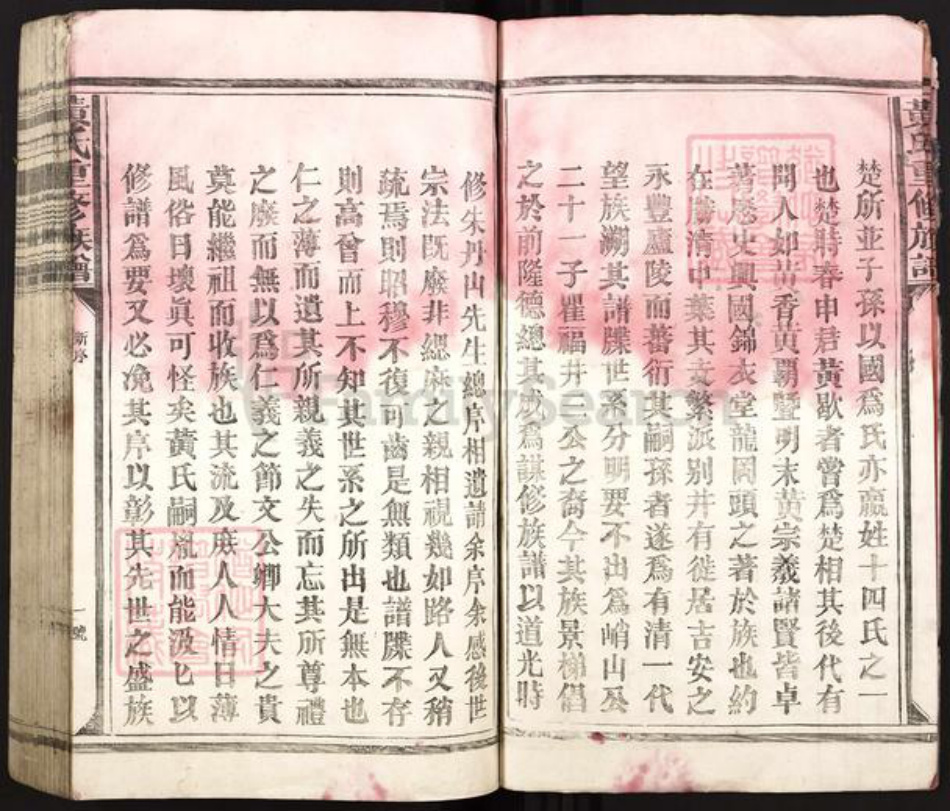 楚所並子孫以國爲氏亦嬴姓十四氏之一
也楚時春申君黃歇者嘗爲楚相其後代有
聞人如黃香黃霸暨明末黃宗羲諸賢皆卓
著廢史興國錦衣堂龍岡頭之著於族也約
在勝清中葉其支繁派別井有徙居吉安之
永豐廬陵而蕃衍其嗣孫者遂爲有清一代
望族溯其譜牒世系分明要不出爲峭山公
二十一子瞿福井三公之裔今其族景梯倡
之於前隆德總其成爲謀修族譜以道光時
修朱丹山先生總序相遺請余序余感後世
宗法既廢非緦麻之親相視幾如路人又稍
疏焉則昭穆不復可齒是無類也譜牒不存
則高曾而上不知其世系之所出是無本也
仁之薄而遺其所親義之失而忘其所尊禮
之廢而無以爲仁義之節文公卿大夫之貴
莫能繼祖而收族也其流及庶人人情日薄
風俗日壞眞可怪矣黃氏嗣胤而能汲乜以
修譜爲要又必浼其序以彰其先世之盛族
黃氏重修族譜
新序
一號
黃氏重修族譜
FamilySearch